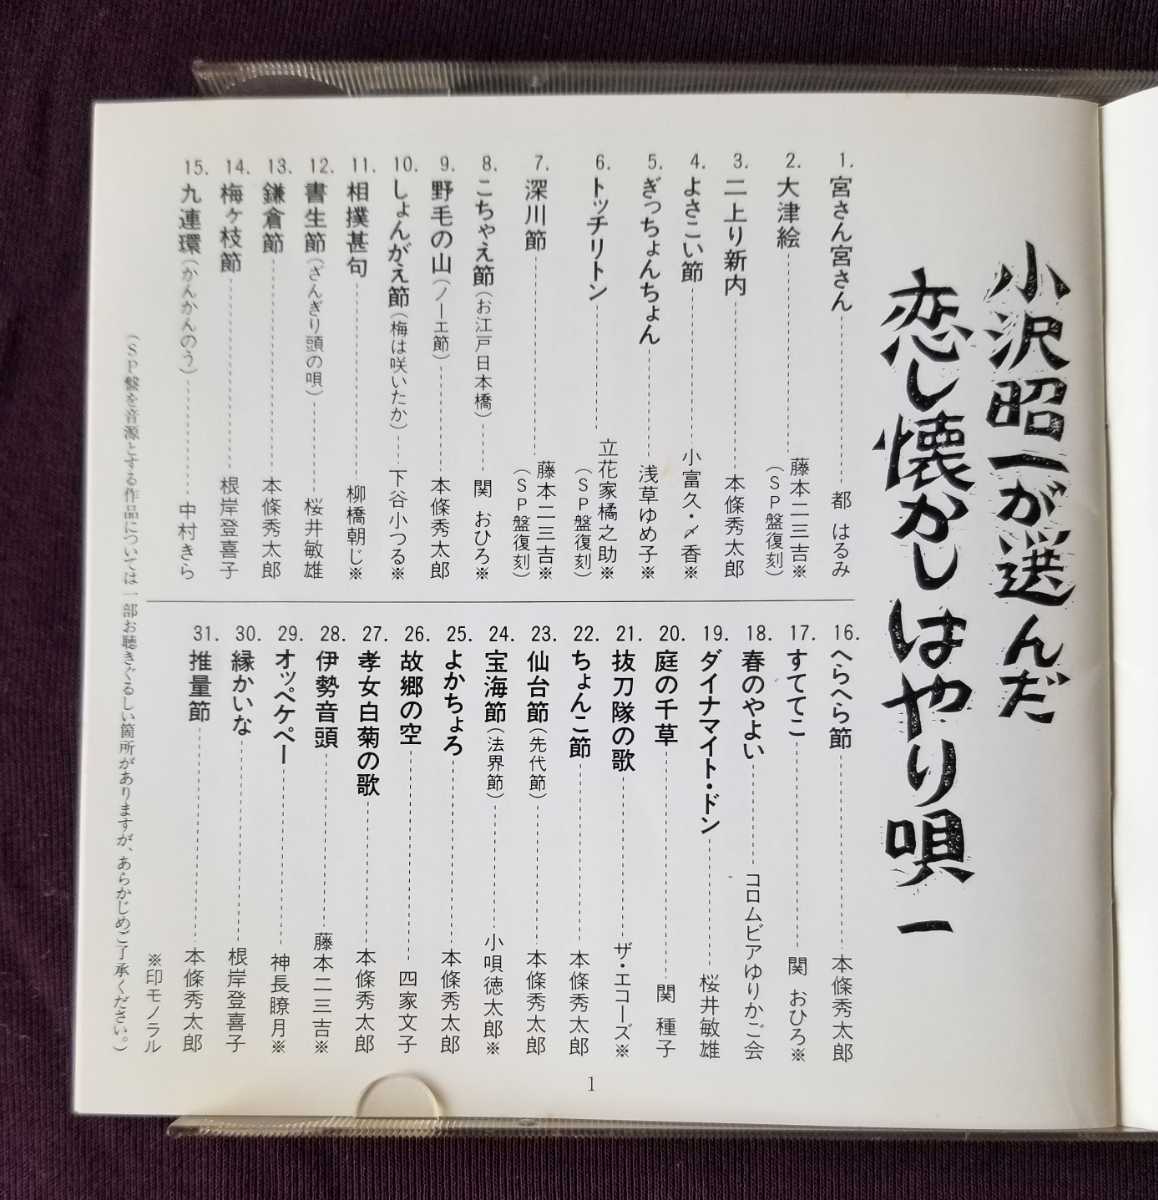 小沢昭一が選んだ
恋し懐かしはやり唄 一
1. 宮さん宮さん 都 はるみ
2. 大津絵 藤本二三吉※
(SP盤復刻)
3. 二上り新内 本條秀太郎
4. よさこい節 小富久・〆香※
5. ぎっちょんちょん 浅草ゆめ子※
6. トッチリトン 立花家橘之助※
(SP盤復刻)
7. 深川節 藤本二三吉※
(SP盤復刻)
8. こちゃえ節(お江戸日本橋) 関 おひろ※
9. 野毛の山(ノーエ節) 本條秀太郎
10. しょんがえ節(梅は咲いたか) 下谷小つる※
11. 相撲甚句 柳橋朝じ※
12. 書生節(ざんぎり頭の唄) 桜井敏雄
13. 鎌倉節 本條秀太郎
14. 梅ヶ枝節 根岸登喜子
15. 九連環(かんかんのう) 中村きら
16. へらへら節 本條秀太郎
17. すててこ 関 おひろ※
18. 春のやよい コロムビアゆりかご会
19. ダイナマイト・ドン 桜井敏雄
20. 庭の千草 関 種子
21. 抜刀隊の歌 ザ・エコーズ※
22. ちょんこ節 本條秀太郎
23. 仙台節(先代節) 本條秀太郎
24. 宝海節(法界節) 小唄徳太郎※
25. よかちょろ 本條秀太郎
26. 故郷の空 四家文子
27. 孝女白菊の歌 本條秀太郎
28. 伊勢音頭 藤本二三吉※
29. オッペケペー 神長瞭月※
30. 縁かいな 根岸登喜子
31. 推量節 本條秀太郎
※印モノラル
(SP盤を音源とする作品については一部お聴きぐるしい箇所がありますが、あらかじめご了承ください。)
1